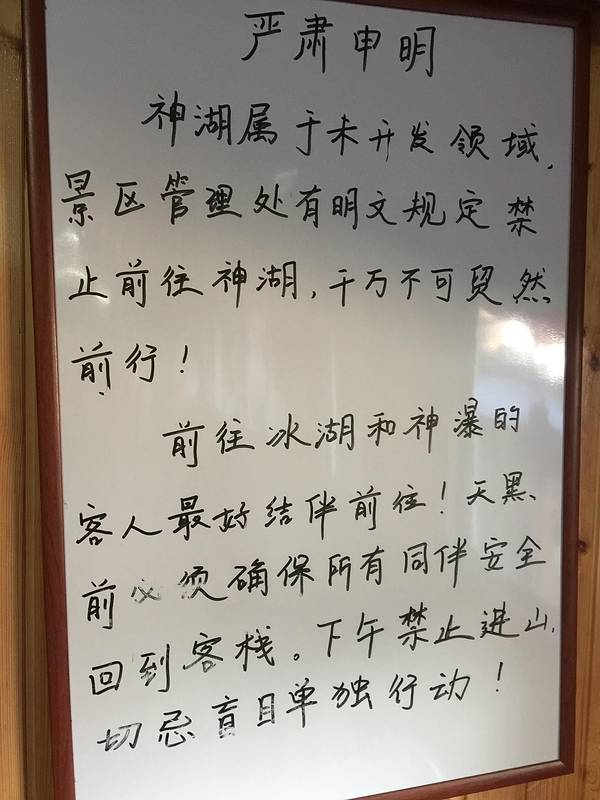 严肃申明
神湖属于未开发领域,
景区管理处有明文规定禁
止前往神湖,千万不可贸然
前行!
前往冰湖和神瀑的
客人最好结伴前往!天黑
前必须确保所有同伴安全
回到客栈。下午禁止进山,
切忌盲目单独行动!